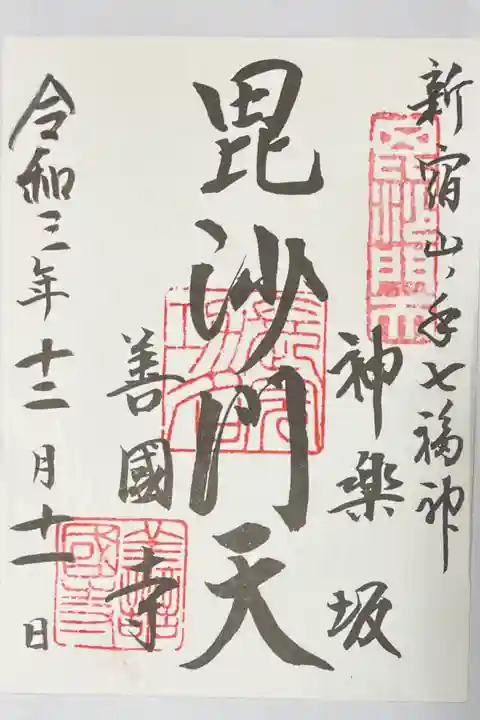 新宿山ノ手七福神
神楽坂
毘沙門天
善國寺
令和三年十二月十一日
毘沙門天
善國寺